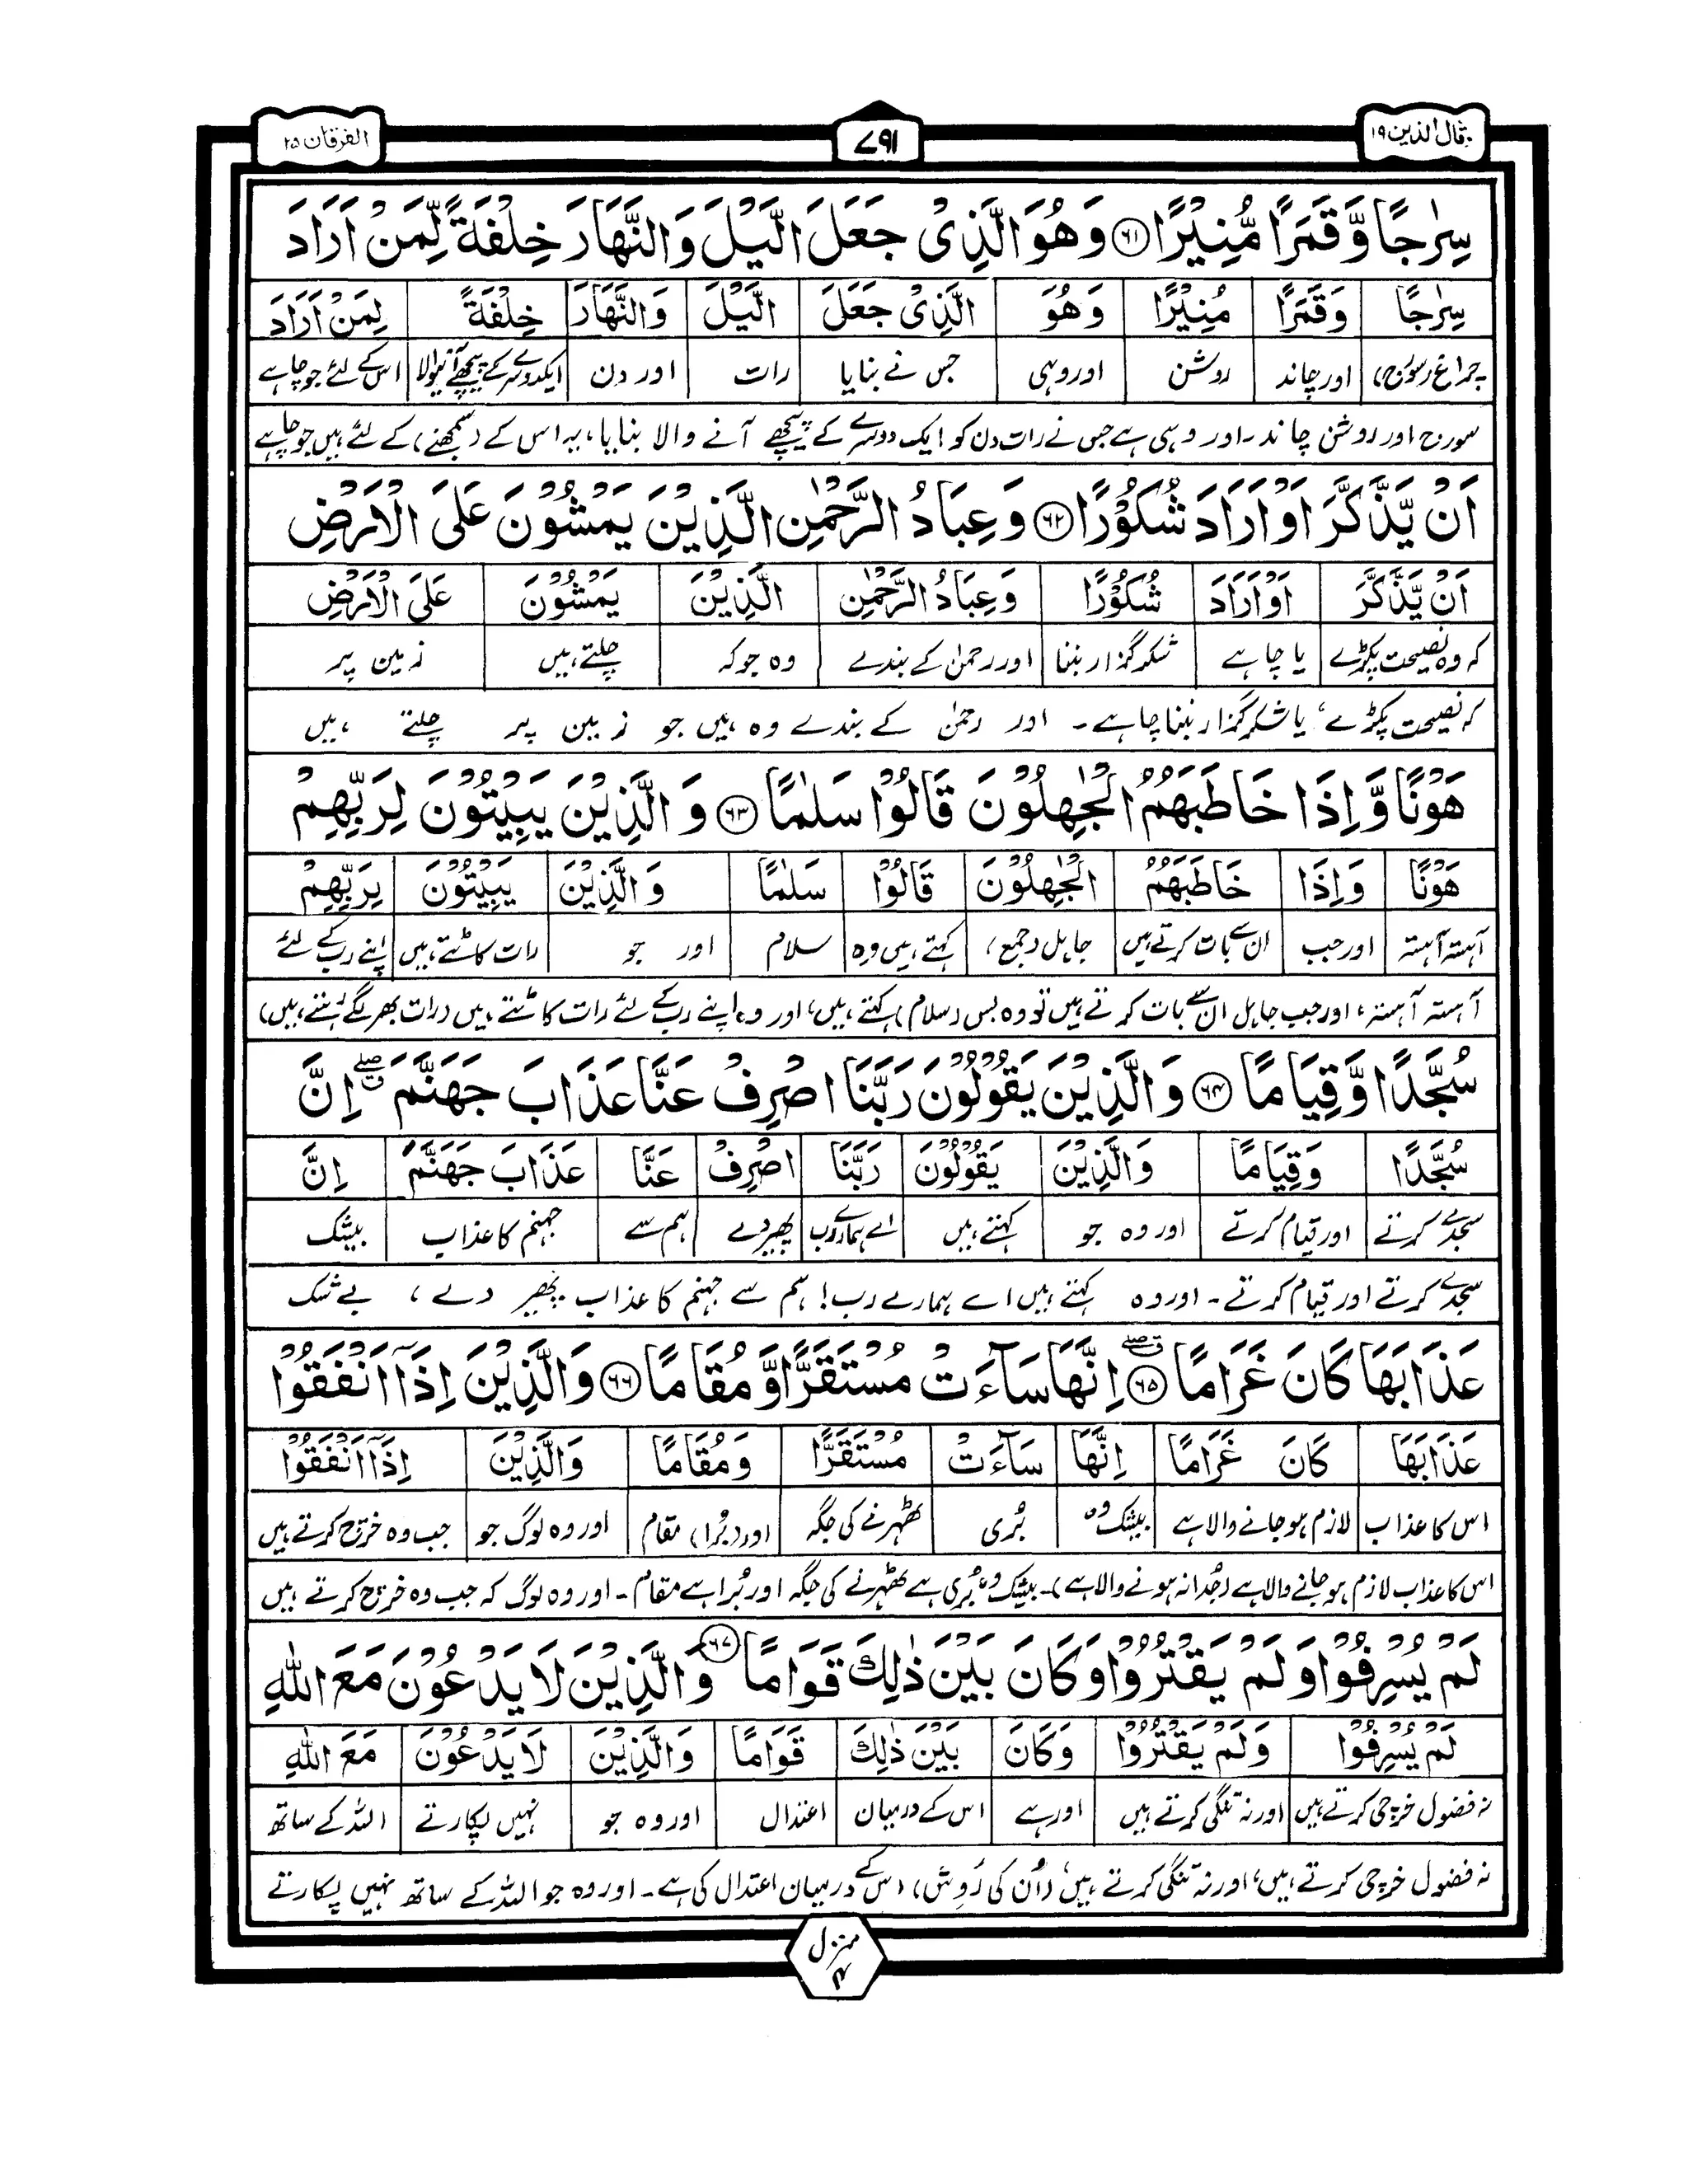 وقال الذین ۱۹
۷۹۱
الفرقان ۲۵
سِرٰجًا وَّقَمَرًا مُّنِیْرًا ﴿۶۱﴾ وَهُوَ الَّذِیْ جَعَلَ الَّیْلَ وَالنَّهَارَ خِلْفَةً لِّمَنْ اَرَادَ
سِرٰجًا وَقَمَرًا مُنِیْرًا وَهُوَ الَّذِیْ جَعَلَ الَّیْلَ وَالنَّهَارَ خِلْفَةً لِمَنْ اَرَادَ
چراغ (سورج) اور چاند روشن اور وہی جس نے بنایا رات اور دن ایک دوسرے کے پیچھے آنیوالا اس کے لئے جو چاہے
سورج اور روشن چاند۔ اور وہی ہے جس نے رات دن کو ایک دوسرے کے پیچھے آنے والا بنایا، یہ اس کے (سمجھنے) کے لئے ہیں جو چاہے
اَنْ یَّذَّكَّرَ اَوْ اَرَادَ شُكُوْرًا ﴿۶۲﴾ وَعِبَادُ الرَّحْمٰنِ الَّذِیْنَ یَمْشُوْنَ عَلَى الْاَرْضِ
اَنْ یَّذَّكَّرَ اَوْ اَرَادَ شُكُوْرًا وَعِبَادُ الرَّحْمٰنِ الَّذِیْنَ یَمْشُوْنَ عَلَى الْاَرْضِ
کہ وہ نصیحت پکڑے یا چاہے شکر گزار بننا اور رحمٰن کے بندے وہ جو کہ چلتے ہیں زمین پر
کہ نصیحت پکڑے، یا شکر گزار بننا چاہے۔ اور رحمٰن کے بندے وہ ہیں جو زمین پر چلتے ہیں
هَوْنًا وَّاِذَا خَاطَبَهُمُ الْجٰهِلُوْنَ قَالُوْا سَلٰمًا ﴿۶۳﴾ وَالَّذِیْنَ یَبِیْتُوْنَ لِرَبِّهِمْ
هَوْنًا وَاِذَا خَاطَبَهُمُ الْجٰهِلُوْنَ قَالُوْا سَلٰمًا وَالَّذِیْنَ یَبِیْتُوْنَ لِرَبِّهِمْ
آہستہ آہستہ اور جب ان سے بات کرتے ہیں جاہل (جمع) کہتے ہیں وہ سلام اور جو رات کاٹتے ہیں اپنے رب کے لئے
آہستہ آہستہ، اور جب جاہل ان سے بات کرتے ہیں تو وہ بس (سلام) کہتے ہیں، اور وہ اپنے رب کے لئے رات کاٹتے ہیں (رات بھر لگے رہتے ہیں)
سُجَّدًا وَّقِیَامًا ﴿۶۴﴾ وَالَّذِیْنَ یَقُوْلُوْنَ رَبَّنَا اصْرِفْ عَنَّا عَذَابَ جَهَنَّمَ ۖ اِنَّ
سُجَّدًا وَقِیَامًا وَالَّذِیْنَ یَقُوْلُوْنَ رَبَّنَا اصْرِفْ عَنَّا عَذَابَ جَهَنَّمَ اِنَّ
سجدے کرتے اور قیام کرتے اور وہ جو کہتے ہیں اے ہمارے رب پھیر دے ہم سے جہنم کا عذاب بیشک
سجدے کرتے اور قیام کرتے۔ اور وہ کہتے ہیں اے ہمارے رب! ہم سے جہنم کا عذاب پھیر دے، بے شک
عَذَابَهَا كَانَ غَرَامًا ﴿۶۵﴾ اِنَّهَا سَآءَتْ مُسْتَقَرًّا وَّمُقَامًا ﴿۶۶﴾ وَالَّذِیْنَ اِذَاۤ اَنْفَقُوْا
عَذَابَهَا كَانَ غَرَامًا اِنَّهَا سَآءَتْ مُسْتَقَرًّا وَمُقَامًا وَالَّذِیْنَ اِذَاۤ اَنْفَقُوْا
اس کا عذاب لازم ہو جانے والا ہے بیشک وہ بُری ٹھہرنے کی جگہ اور (بُرا) مقام اور وہ لوگ جو جب وہ خرچ کرتے ہیں
اس کا عذاب لازم ہو جانے والا ہے (جُدا نہ ہونے والا ہے)۔ بیشک وہ بُری ہے ٹھہرنے کی جگہ اور بُرا ہے مقام۔ اور وہ لوگ کہ جب وہ خرچ کرتے ہیں
لَمْ یُسْرِفُوْا وَلَمْ یَقْتُرُوْا وَكَانَ بَیْنَ ذٰلِكَ قَوَامًا ﴿۶۷﴾ وَالَّذِیْنَ لَا یَدْعُوْنَ مَعَ اللّٰهِ
لَمْ یُسْرِفُوْا وَلَمْ یَقْتُرُوْا وَكَانَ بَیْنَ ذٰلِكَ قَوَامًا وَالَّذِیْنَ لَا یَدْعُوْنَ مَعَ اللّٰهِ
نہ فضول خرچی کرتے ہیں اور نہ تنگی کرتے ہیں اور ہے اس کے درمیان اعتدال اور وہ جو نہیں پکارتے اللہ کے ساتھ
نہ فضول خرچی کرتے ہیں، اور نہ تنگی کرتے ہیں (اُن کی رَوِش) اس کے درمیان اعتدال کی ہے۔ اور وہ جو اللہ کے ساتھ نہیں پکارتے
منزل
۴